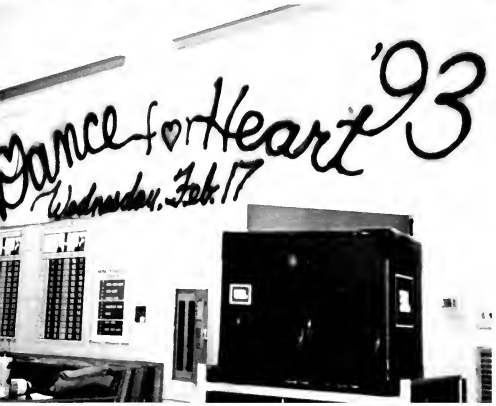 Dance for Heart '93
Wednesday, Feb. 17